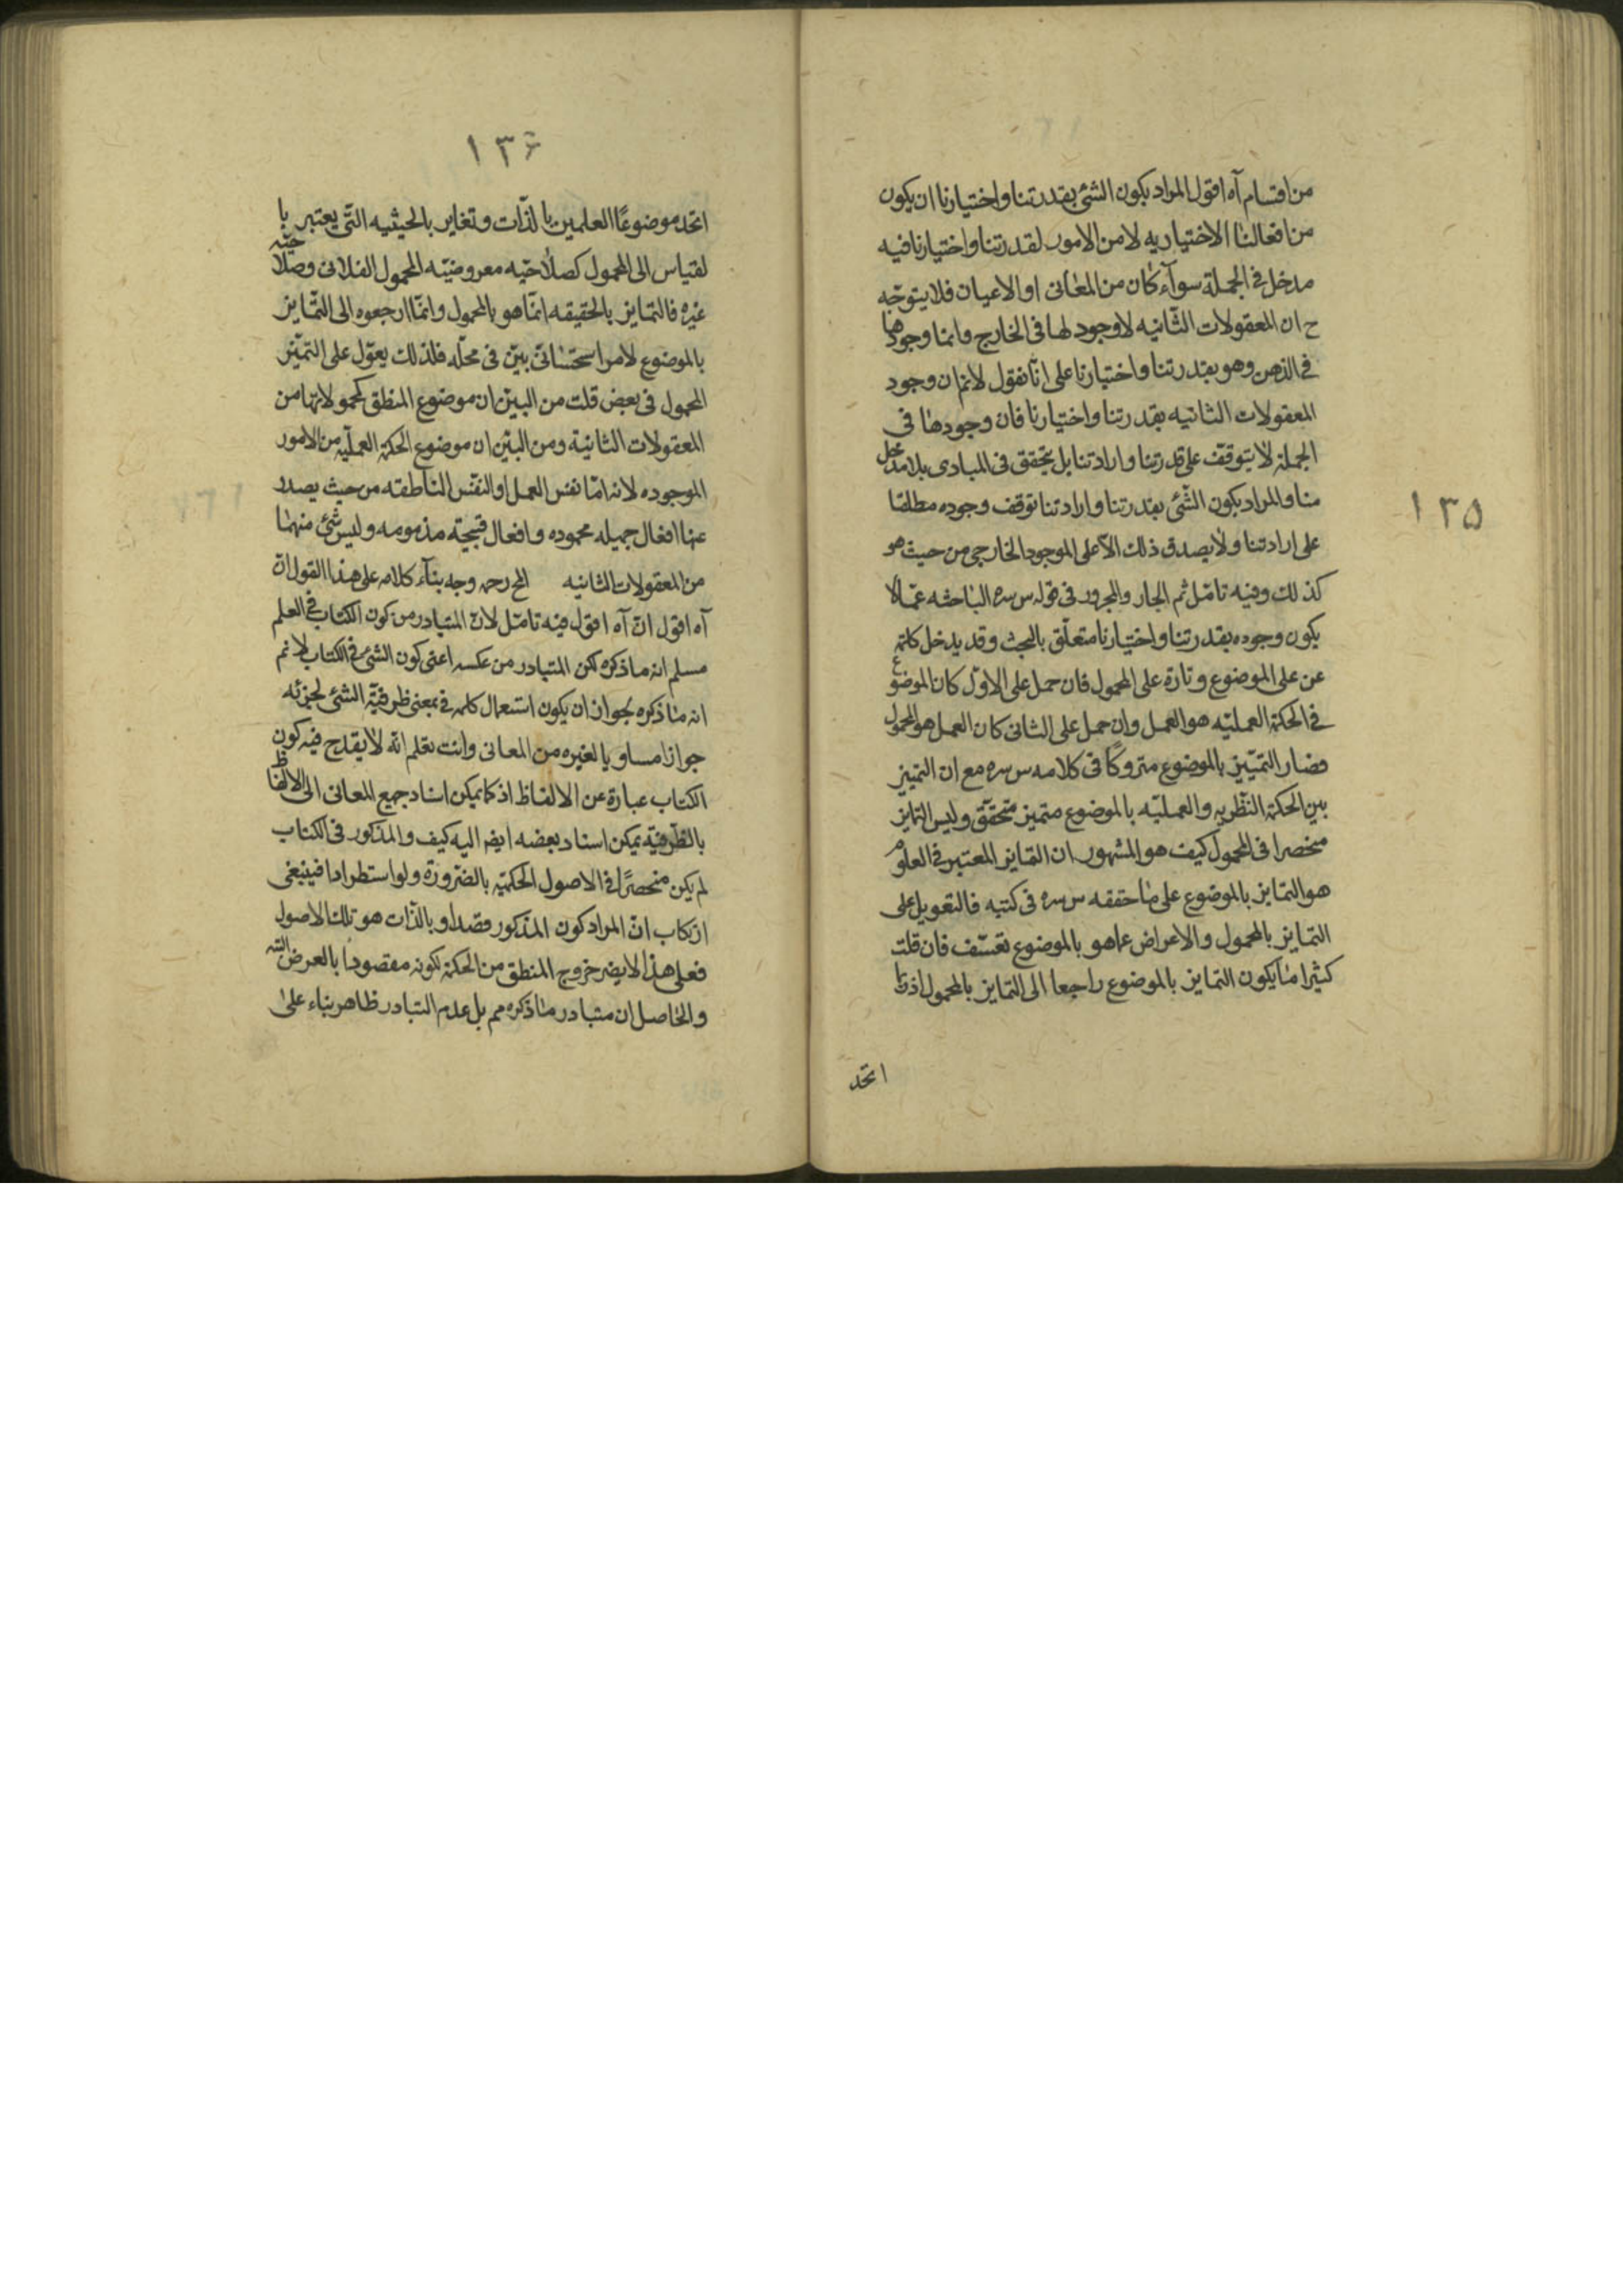 من اقسام آه اقول المراد بكون الشئ بقدرتنا واختيارنا ان يكون
من افعالنا الاختياريه لا من الامور لقدرتنا واختيارنا فيه
مدخل فى الجملة سوآء كان من المعانى او الاعيان فلا يتوجّه
ح ان المعقولات الثّانيه لا وجود لها فى الخارج وانما وجودها
فى الذهن وهو بقدرتنا واختيارنا على انّا نقول لانم ان وجود
المعقولات الثانيه بقدرتنا واختيارنا فان وجودها فى
الجملة لا يتوقّف على قدرتنا وارادتنا بل يتحقق فى المبادى بلا مدخل
منا والمراد بكون الشّئ بقدرتنا وارادتنا توقف وجوده مطلقا
على ارادتنا ولا يصدق ذلك الّا على الموجود الخارجى من حيث هو
كذلك وفيه تامّل ثم الجار والمجرور فى قوله س سره الباحثه عمّا لا
يكون وجوده بقدرتنا واختيارنا متعلّق بالبحث وقد يدخل كلمة
عن على الموضوع وتارة على المحمول فان حمل على الاوّل كان الموضوع
فى الحكمة العمليّه هو العمل وان حمل على الثانى كان العمل هو المحمول
فصار التميّيز بالموضوع متروكًا فى كلامه س سره مع ان التمييز
بين الحكمة النّظريه والعمليّه بالموضوع متميز متحقّق وليس التمايز
منحصرا فى المحمول كيف هو المشهور ان التمايز المعتبر فى العلوم
هو التمايز بالموضوع على ما حققه س سره فى كتبه فالتعويل على
التمايز بالمحمول والاعراض عما هو بالموضوع تعسّف فان قلت
كثيرا ما يكون التمايز بالموضوع راجعا الى التمايز بالمحمول اذ ربّما
اتّحد
١٣٥
١٣٦
اتّحد موضوعًا العلمين بالذّات وتغاير بالحيثيه التّى يعتبر با
لقياس الى المحمول كصلاحيّه معروضيّه المحمول الفلانى وصلاحيّه
غيره فالتمايز بالحقيقه انّما هو بالمحمول وانّما ارجعوه الى التّمايز
بالموضوع لامر استحسانىّ بيّن فى محلّه فلذلك يعوّل على التميّز
المحمول فى بعض قلت من البيّن ان موضوع المنطق كمحمولاتها من
المعقولات الثانية ومن البيّن ان موضوع الحكمة العمليّه من الامور
الموجوده لانه امّا نفس العمل او النفس الناطقه من حيث يصدر
عنها افعال جميله محموده وافعال قبيحة مذمومه وليس شئ منهما
من المعقولات الثانيه المح رحمه وجه بنآء كلامه على هذا القول انّ
آه اقول انّ آه اقول فيه تامّل لانّ المتبادر من كون الكتاب فى العلم
مسلم انه ما ذكره لكن المتبادر من عكسه اعنى كون الشئ فى الكتاب لا نم
انه ما ذكره لجواز ان يكون استعمال كلمه فى بمعنى ظرفيّة الشئ لجزئه
جوازا مساويا لغيره من المعانى وانت تعلم انّه لا يقدح فيه كون
الكتاب عبارة عن الالفاظ اذ كما يمكن اسناد جميع المعانى الى الالفاظ
بالظّرفيّه يمكن اسناد بعضه ايضا اليه كيف والمذكور فى الكتاب
لم يكن منحصرًا فى الاصول الحكميّه بالضّرورة ولو استطرادا فينبغى
ارتكاب انّ المراد كون المذكور قصدا وبالذّات هو تلك الاصول
فعلى هذا لا يضر خروج المنطق من الحكمة لكونه مقصودا بالعرض
والحاصل ان متبادر ما ذكره مم بل عدم التبادر ظاهر بناء على